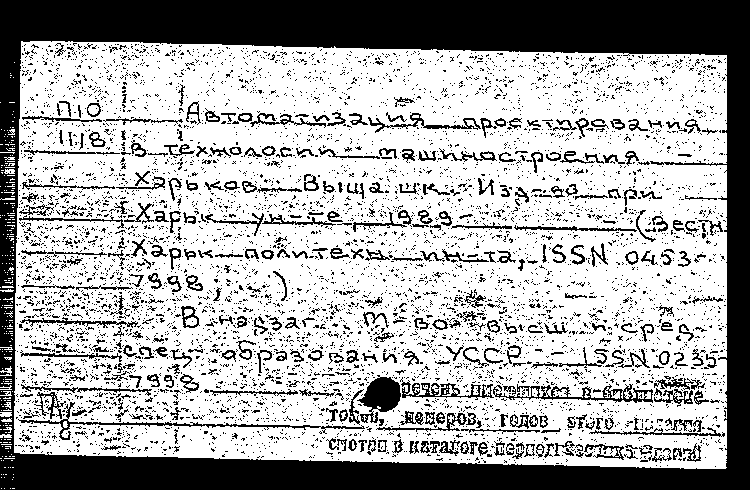 П10 Автоматизация проектирования
1118 в технологии машиностроения. -
Харьков: Выща шк. Изд-во при
Харьк. ун-те, 1989- - (Вестн.
Харьк. политехн. ин-та, ISSN 0453-
7998; ...)
В надзаг.: М-во высш. и сред.
спец. образования УССР. - ISSN 0235-
7998.
Перечень имеющихся в библиотеке
томов, номеров, годов этого издания
смотри в каталоге период